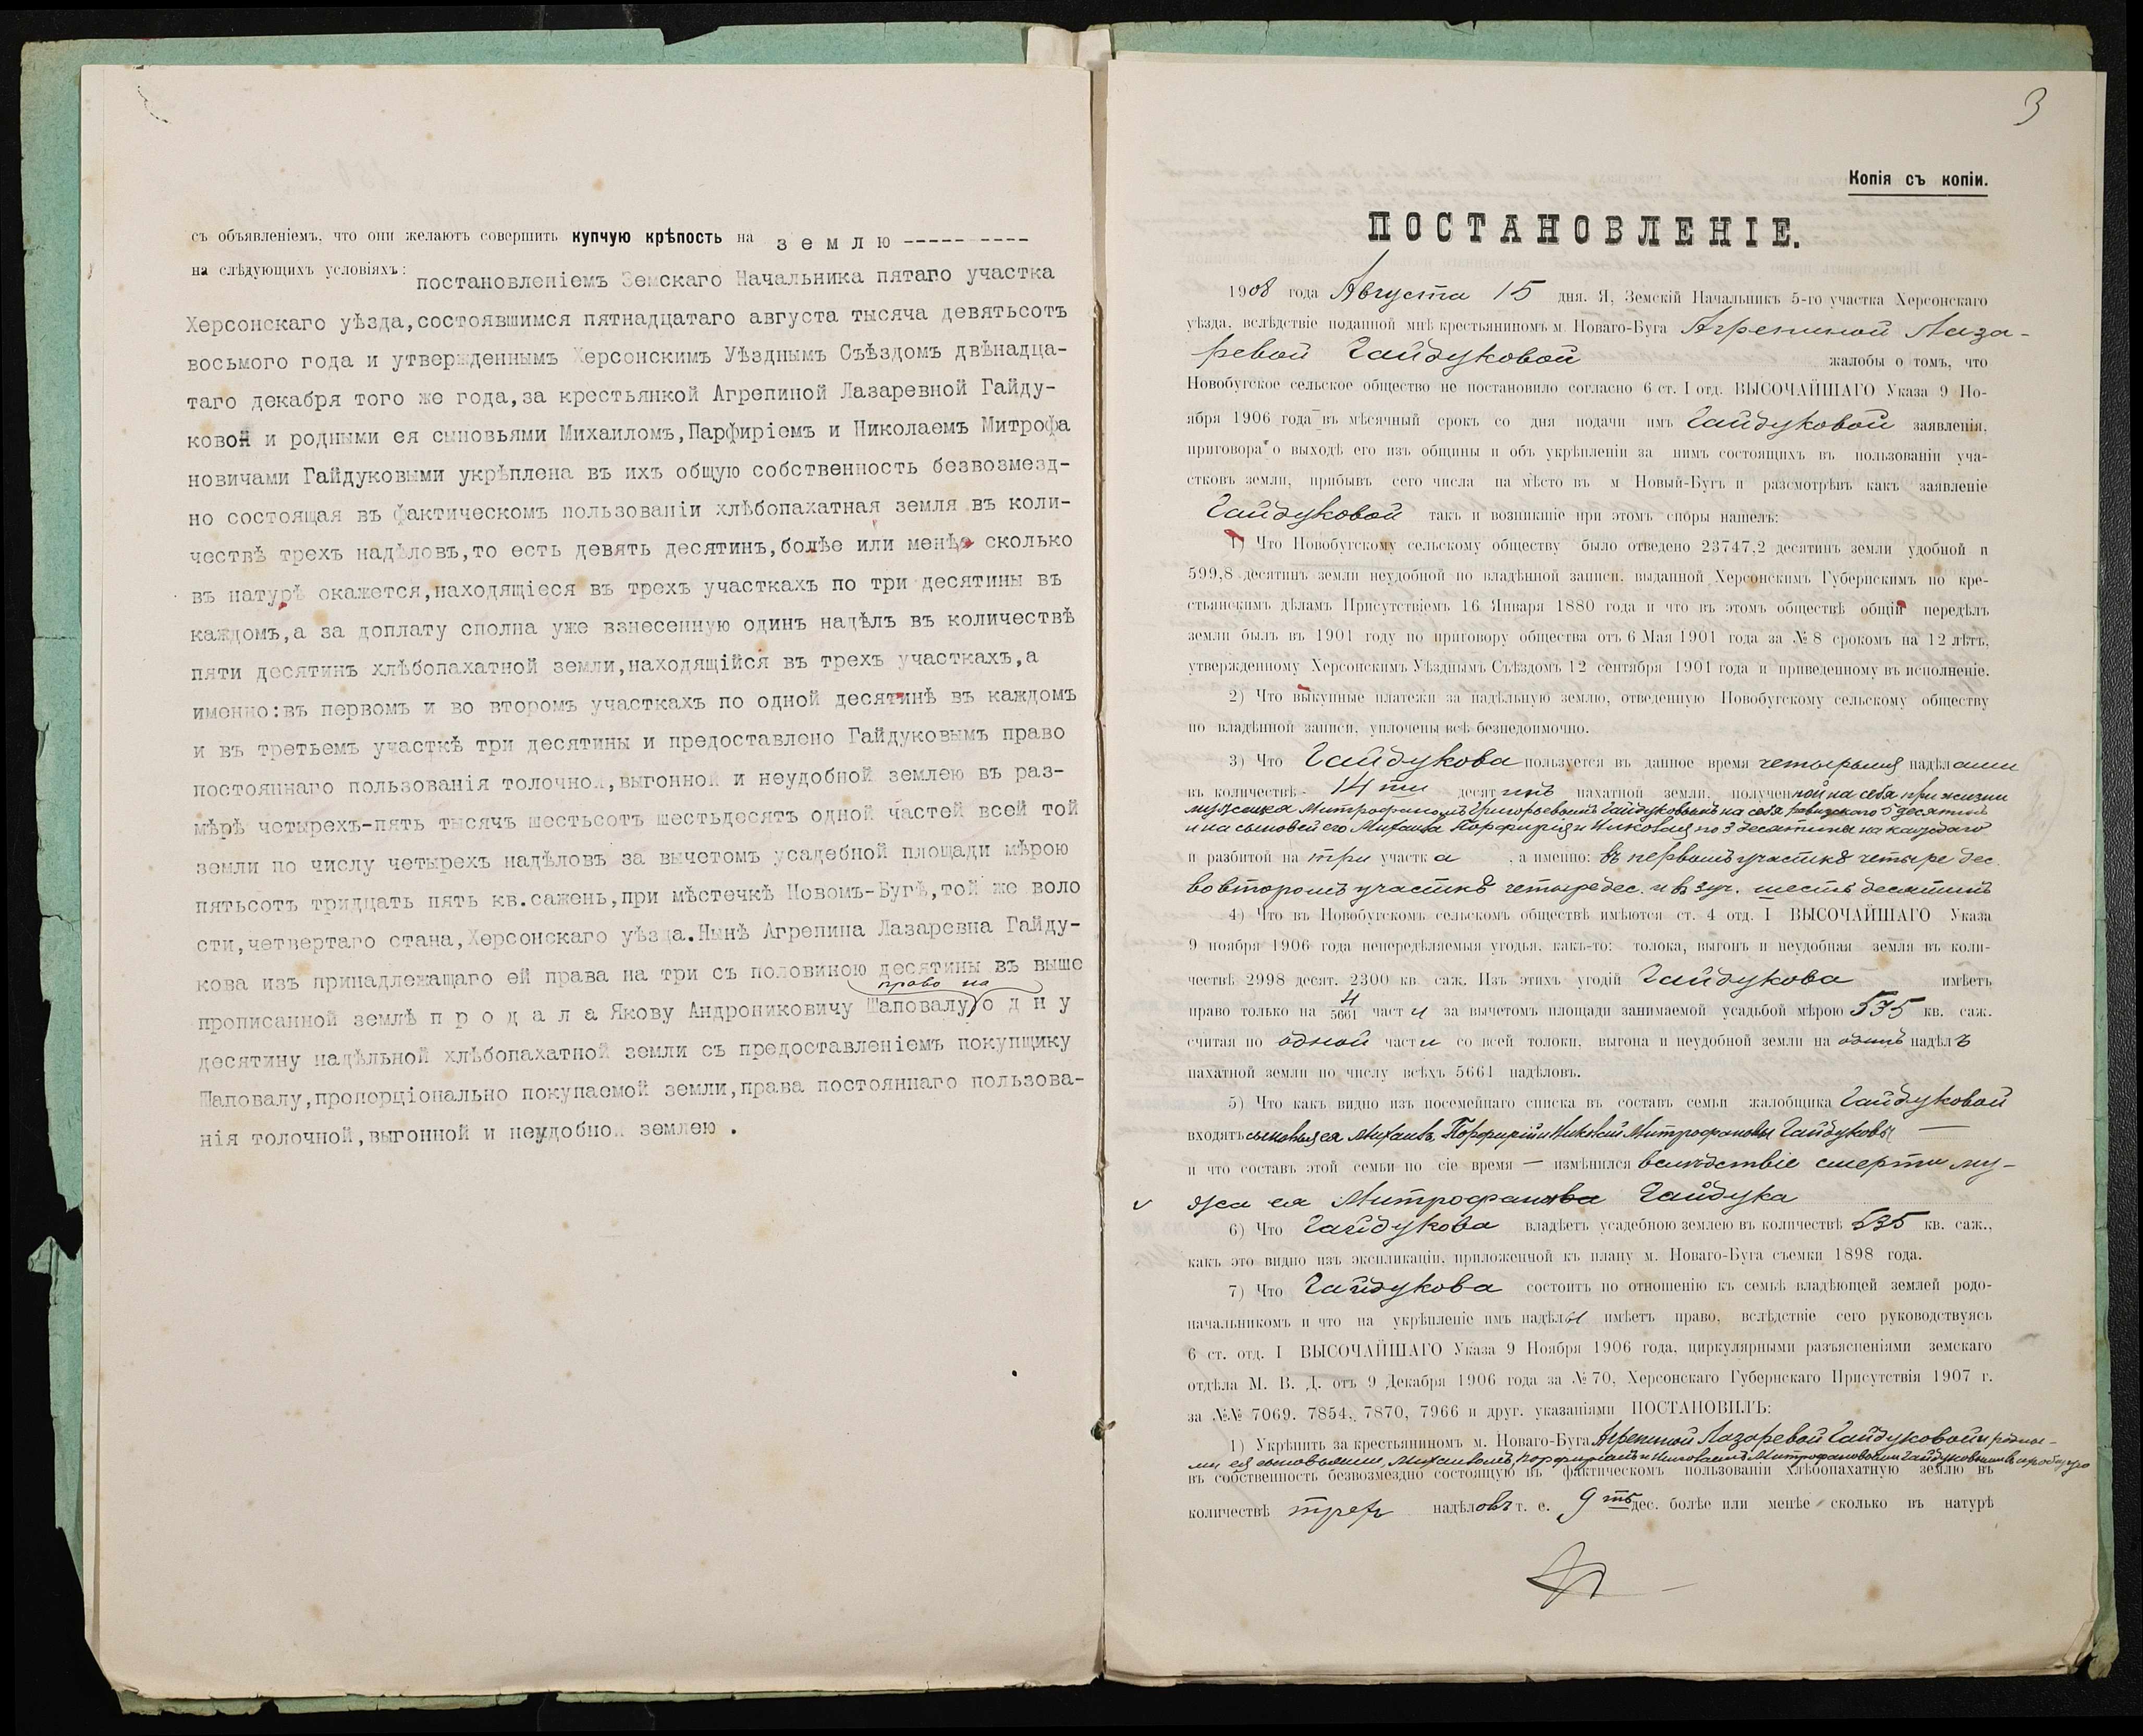 съ объявленіемъ, что они желаютъ совершить купчую крѣпость на з е м л ю ----- ----
на слѣдующихъ условіяхъ: постановленіемъ Земскаго Начальника пятаго участка
Херсонскаго уѣзда,состоявшимся пятнадцатаго августа тысяча девятьсотъ
восьмого года и утвержденнымъ Херсонскимъ Уѣзднымъ Съѣздомъ двѣнадца-
таго декабря того же года,за крестьянкой Агрепиной Лазаревной Гайду-
ковой и родными ея сыновьями Михаиломъ,Парфиріемъ и Николаемъ Митрофа
новичами Гайдуковыми укрѣплена въ ихъ общую собственность безвозмезд-
но состоящая въ фактическомъ пользованіи хлѣбопахатная земля въ коли-
чествѣ трехъ надѣловъ,то есть девять десятинъ,болѣе или менѣе сколько
въ натурѣ окажется,находящіеся въ трехъ участкахъ по три десятины въ
каждомъ,а за доплату сполна уже взнесенную одинъ надѣлъ въ количествѣ
пяти десятинъ хлѣбопахатной земли,находящійся въ трехъ участкахъ,а
именно:въ первомъ и во второмъ участкахъ по одной десятинѣ въ каждомъ
и въ третьемъ участкѣ три десятины и предоставлено Гайдуковымъ право
постояннаго пользованія толочной,выгонной и неудобной землею въ раз-
мѣрѣ четырехъ-пять тысячъ шестьсотъ шестьдесятъ одной частей всей той
земли по числу четырехъ надѣловъ за вычетомъ усадебной площади мѣрою
пятьсотъ тридцать пять кв.сажень,при мѣстечкѣ Новомъ-Бугѣ,той же воло
сти,четвертаго стана,Херсонскаго уѣзда.Нынѣ Агрепина Лазаревна Гайду-
кова изъ принадлежащаго ей права на три съ половиною десятины въ выше
право на
прописанной землѣ п р о д а л а Якову Андрониковичу Шаповалу о д н у
десятину надѣльной хлѣбопахатной земли съ предоставленіемъ покупщику
Шаповалу,пропорціонально покупаемой земли,права постояннаго пользова-
нія толочной,выгонной и неудобной землею .
3
Копія съ копіи.
ПОСТАНОВЛЕНІЕ.
1908 года Августа 15 дня. Я, Земскій Начальникъ 5-го участка Херсонскаго
уѣзда, вслѣдствіе поданной мнѣ крестьяниномъ м. Новаго-Буга Агрепиной Лаза-
ревой Гайдуковой жалобы о томъ, что
Новобугское сельское общество не постановило согласно 6 ст. I отд. ВЫСОЧАЙШАГО Указа 9 Но-
ября 1906 года въ мѣсячный срокъ со дня подачи имъ Гайдуковой заявленія,
приговора о выходѣ его изъ общины и объ укрѣпленіи за нимъ состоящихъ въ пользованіи уча-
стковъ земли, прибывъ сего числа на мѣсто въ м Новый-Бугъ и разсмотрѣвъ какъ заявленіе
Гайдуковой такъ и возникшіе при этомъ споры нашелъ:
1) Что Новобугскому сельскому обществу было отведено 23747,2 десятинъ земли удобной и
599,8 десятинъ земли неудобной по владѣнной записи, выданной Херсонскимъ Губернскимъ по кре-
стьянскимъ дѣламъ Присутствіемъ 16 Января 1880 года и что въ этомъ обществѣ общій передѣлъ
земли былъ въ 1901 году по приговору общества отъ 6 Мая 1901 года за № 8 срокомъ на 12 лѣтъ,
утвержденному Херсонскимъ Уѣзднымъ Съѣздомъ 12 сентября 1901 года и приведенному въ исполненіе.
2) Что выкупные платежи за надѣльную землю, отведенную Новобугскому сельскому обществу
по владѣнной записи, уплочены всѣ безнедоимочно.
3) Что Гайдукова пользуется въ данное время четырьмя надѣлами
въ количествѣ 14 ти десятинъ пахатной земли, полученной на себя при жизни
мужемъ Митрофаномъ Григорьевымъ Гайдуковымъ на себя 5 десятинъ
и на сыновей его Михаила Порфирія и Николая по 3 десятины на каждаго
и разбитой на три участка, а именно: въ первомъ участкѣ четыре дес.
во второмъ участкѣ четыре дес. и въ 3 уч. шесть десятинъ
4) Что въ Новобугскомъ сельскомъ обществѣ имѣются ст. 4 отд. I ВЫСОЧАЙШАГО Указа
9 ноября 1906 года непередѣляемыя угодья, какъ-то: толока, выгонъ и неудобная земля въ коли-
чествѣ 2998 десят. 2300 кв саж. Изъ этихъ угодій Гайдукова имѣетъ
право только на 4/5661 части за вычетомъ площади занимаемой усадьбой мѣрою 535 кв. саж.
считая по одной части со всей толоки, выгона и неудобной земли на одинъ надѣлъ
пахатной земли по числу всѣхъ 5661 надѣловъ.
5) Что какъ видно изъ посемейнаго списка въ составъ семьи жалобщика Гайдуковой
входятъ сыновья ея Михаилъ, Порфирій и Николай Митрофановы Гайдуковы —
и что составъ этой семьи по сіе время — измѣнился вслѣдствіе смерти му-
жа ея Митрофана Гайдука
6) Что Гайдукова владѣетъ усадебною землею въ количествѣ 535 кв. саж.,
какъ это видно изъ экспликаціи, приложенной къ плану м. Новаго-Буга съемки 1898 года.
7) Что Гайдукова состоитъ по отношенію къ семьѣ владѣющей землей родо-
начальникомъ и что на укрѣпленіе имъ надѣлы имѣетъ право, вслѣдствіе сего руководствуясь
6 ст. отд. I ВЫСОЧАЙШАГО Указа 9 Ноября 1906 года, циркулярными разъясненіями земскаго
отдѣла М. В. Д. отъ 9 Декабря 1906 года за № 70, Херсонскаго Губернскаго Присутствія 1907 г.
за №№ 7069. 7854, 7870, 7966 и друг. указаніями ПОСТАНОВИЛЪ:
1) Укрѣпить за крестьяниномъ м. Новаго-Буга Агрепиной Лазаревой Гайдуковой и родны-
ми ея сыновьями, Михаиломъ, Порфиріемъ и Николаемъ Митрофановыми Гайдуковыми
въ собственность безвозмездно состоящую въ фактическомъ пользованіи хлѣбопахатную землю въ
количествѣ трехъ надѣловъ т. е. 9 ть дес. болѣе или менѣе сколько въ натурѣ